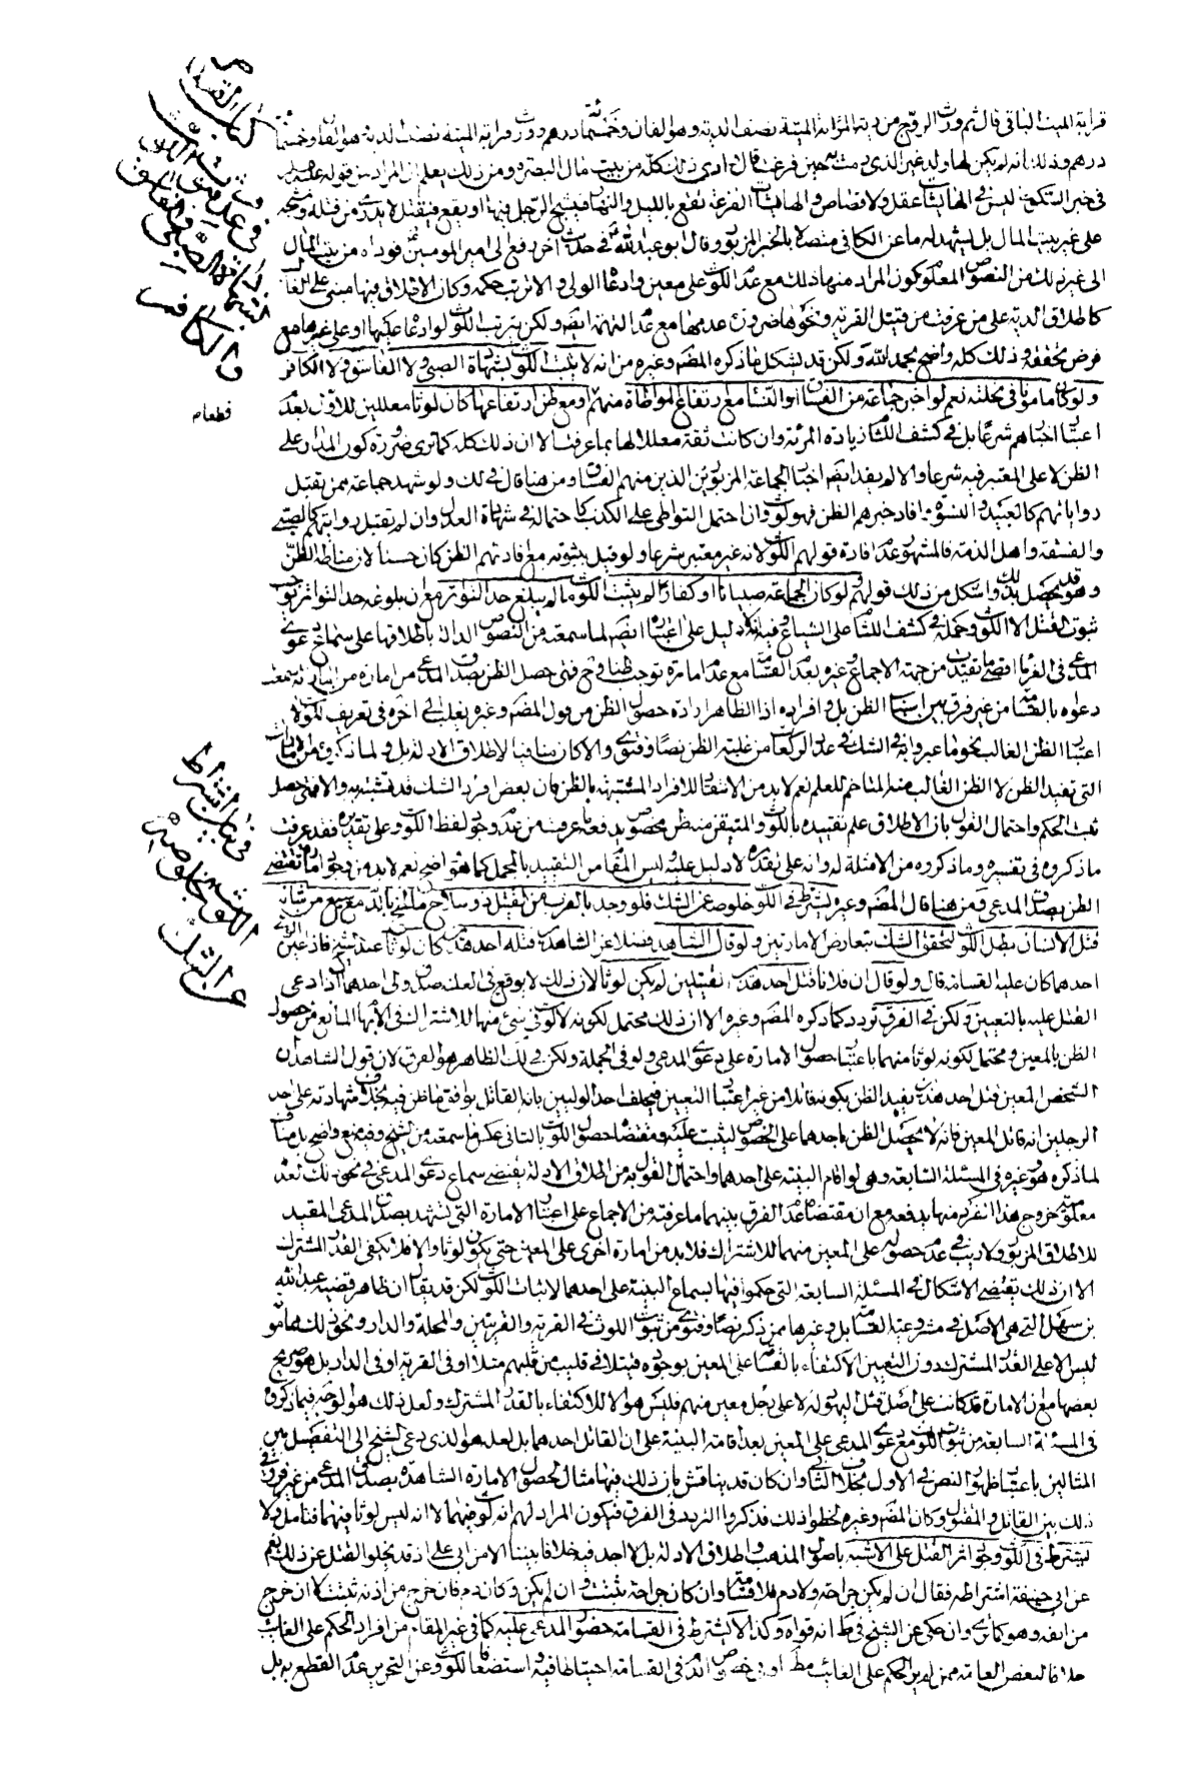 قرابة الميت الباقي قال ثم ورث الزوج من دية المرأة الميتة نصف الدية وهو الفان وخمسمأة درهم وورث قرابة الميتة نصف الدية هو الفا وخمسمأة
درهم وذلك انه لم يكن لها ولد غير الذي رمت به حين فزعت قال وادى ذلك كله من بيت مال البصرة ومن ذلك يعلم ان المراد من قوله عليه
في خبر السكوني ليس في الهايشات عقل ولا قصاص والهايشات الفزعة تقع بالليل والنهار فيشج الرجل فيها او يقع قتيل لا يدرى من قتله وشجه
على غير بيت المال بل يشهد له ما عن الكافي متصلا بالخبر المزبور وقال ابو عبد الله في حديث اخر رفع الى امير المؤمنين فوداه من بيت المال
الى غير ذلك من النصوص المعلوم كون المراد منها ذلك مع عدم اللوث على معين وادعاء الولي والا ترتب حكمه وكان الاطلاق فيها مبني على الغالب
كاطلاق الدية على من عرفت من قتيل القرية ونحوها ضرورة عدمها مع عدم التهمة ايضا ولكن يترتب اللوث لو ادعا عليها او على غيرها مع
فرض تحققه وذلك كله واضح بحمد الله ولكن قد يشكل ما ذكره المصنف وغيره من انه لا يثبت اللوث بشهادة الصبي ولا الفاسق ولا الكافر
ولو كان مأمونا في نحلته نعم لو اخبر جماعة من الفساق او النساء مع ارتفاع المواطاة منهم او مع ظن ارتفاعها كان لوثا معللين للاول بعدم
اعتبار اخبارهم شرعا بل في كشف اللثام زيادة المرئة وان كانت ثقة معللا لها بما عرفت الا ان ذلك كله كما ترى ضرورة كون المدار على
الظن لا على المعتبر فيه شرعا والا لم يفد ايضا اخبار الجماعة المزبورين الذين منهم الفساق ومن هنا قال في لك ولو شهد جماعة ممن تقبل
رواياتهم كالعبيد والنسوة وافاد خبرهم الظن فهو لوث وان احتمل التواطي على الكذب كاحتماله في شهادة العدل وان لم تقبل روايتهم كالصبية
والفسقة واهل الذمة فالمشهور عدم افادة قولهم اللوث لانه غير معتبر شرعا ولو قيل بثبوته مع افادتهم الظن كان حسنا لان مناطه الظن
وهو قد يحصل بذلك واشكل من ذلك قولهم لو كان الجماعة صبيانا او كفارا لم يثبت اللوث ما لم يبلغ حد التواتر مع ان بلوغه حد التواتر يوجب
ثبوت القتل لا اللوث وحمله في كشف اللثام على الشياع وفيه انه لا دليل على اعتباره ايضا لما سمعته من النصوص الدالة باطلاقها على سماع دعوى
المدعي
دعواه بالقسامة من غير فرق بين اسباب الظن بل وافراده اذا الظاهر ارادة حصول الظن من قول المصنف وغيره يغلب الى اخره في تعريف اللوث لا
اعتبار الظن الغالب نحو ما عبروا به في الشك في عدد الركعات من غلبة الظن نصا وفتوى والا كان منافيا لاطلاق الادلة بل ولما ذكروه من الامارات
التي تفيد الظن لا الظن الغالب منه المتاخم للعلم نعم لا بد من الانتفاء للافراد المشتبهة بالظن فان بعض افراد الشك قد تشتبه به والا فمتى حصل
ثبت الحكم واحتمال القول بان الاطلاق علم تقييده باللوث والمتيقن منه ظن مخصوص يدفعه ما عرفت من عدم وجود لفظ اللوث وعلى تقديره فقد عرفت
ما ذكروه في تفسيره وما ذكروه من الامثلة له وانه على تقديره لا دليل عليه ليس المقام من التقييد بالمجمل كما هو واضح نعم لا بد من وجود امارة تقتضي
الظن بصدق المدعي ومن هنا قال المصنف وغيره يشترط في اللوث خلوصه عن الشك فلو وجد بالقرب من القتيل ذو سلاح ملطخ بالدم مع سبع من شأنه
قتل الانسان بطل اللوث لتحقق الشك بتعارض الامارتين ولو قال الشاهد فضلا عن الشاهدين قتله احد هذين كان لوثا عند الشيخ فاذا عين الولي
احدهما كان عليه القسامة قال ولو قال ان فلانا قتل احد هذين القتيلين لم يكن لوثا لان ذلك لا يوقع في القلب صدق ولي احدهما اذا ادعى
القتل عليه بالتعيين ولكن في الفرق تردد كما ذكره المصنف وغيره الا ان ذلك محتمل لكونه لا لوث في شيء منهما للاشتراك في الابهام المانع من حصول
الظن بالمعين ومحتمل لكونه لوثا منهما باعتبار حصول الامارة على دعوى المدعي ولو في الجملة ولكن في لك الظاهر هو الفرق لان قول الشاهد ان
الشخص المعين قتل احد هذين يفيد الظن بكونه قاتلا من غير اعتبار التعيين فيحلف احد الوليين بانه القاتل يوافق ما ظن فيه بخلاف شهادته على احد
الرجلين انه قاتل المعين فانه لا يحصل الظن باحدهما على الخصوص ليثبت عليه ومقتضاه حصول اللوث بالثاني عكس ما سمعته من الشيخ وفيه منع واضح بل مناف
لما ذكره هو وغيره في المسئلة السابعة وهي لو اقام البينة على احدهما واحتمال القول به من اطلاق الادلة يقتضي سماع دعوى المدعي في نحو ذلك بعد
معلومية خروج هذا الفرد منها يدفعه مع ان مقتضاه عدم الفرق بينهما ما عرفته من الاجماع على اعتبار الامارة التي تشهد بصدق المدعي المقيد
للاطلاق المزبور ولا ريب في عدم حصوله على المعين منهما للاشتراك فلا بد من امارة اخرى على المعين حتى يكون لوثا والا فلا يكفي القدر المشترك
الا ان ذلك يقتضي الاشكال في المسئلة السابقة التي حكموا فيها بسماع البينة على احدهما لاثبات اللوث لكن قد يقال ان ظاهر قضية عبد الله
بن سهل التي هي الاصل في مشروعية القسامة بل وغيرها مما ذكر نصا وفتوى من ثبوت اللوث في القرية والقريتين والمحلة والدار ونحو ذلك مما هو
ليس الا على القدر المشترك دون التعيين الاكتفاء بالقسامة على المعين بوجوده قتيلا في قليب من قلبهم مثلا او في القرية او في الدار بل هو صريح
بعضها مع ان الامارة قد كانت على اصل قتل اليهود له لا على رجل معين منهم فليس هو الا للاكتفاء بالقدر المشترك ولعل ذلك هو الوجه فيما ذكروه
في المسئلة السابعة من ثبوت اللوث مع دعوى المدعي على المعين بعد اقامة البينة على ان القاتل احدهما بل لعله هو الذي دعى الشيخ الى التفصيل بين
المثالين باعتبار ظهور النص في الاول بخلاف الثاني وان كان قد يناقش بان ذلك فيها مثال لحصول الامارة الشاهدة بصدق المدعي من غير فرق في
ذلك بين القاتل والمقتول وكان المصنف وغيره لحظوا ذلك فذكروا التردد في الفرق فيكون المراد لهم انه لوث فيهما لا انه ليس لوثا فيهما فتامل ولا
يشترط في اللوث وجود اثر القتل على الاشبه باصول المذهب واطلاق الادلة بل لا اجد فيه خلافا بيننا الا من ابي علي اذ قد يخلو القتل عن ذلك نعم
عن ابي حنيفة اشتراطه فقال ان لم يكن جراحة ولا دم فلا قسامة وان كان جراحة ثبتت وان لم يكن وكان دم فان خرج من اذنه ثبتت لا ان خرج
من انفه وهو كما ترى وان حكى عن الشيخ في ط انه قواه وكذا لا يشترط في القسامة حضور المدعى عليه كما في غير المقام من افراد الحكم على الغائب
خلافا لبعض العامة ممن لم ير الحكم على الغائب مط او في خصوص الدم في القسامة احتياطا فيه واستضعافا للوث وعن التحرير عدم القطع به بل
كتاب القصاص
في عدم ثبوت اللوث
بشهادة الصبي والفاسق
والكافر
قطعام
في بيان اشتراط
اللوث بخلوصه
عن الشك